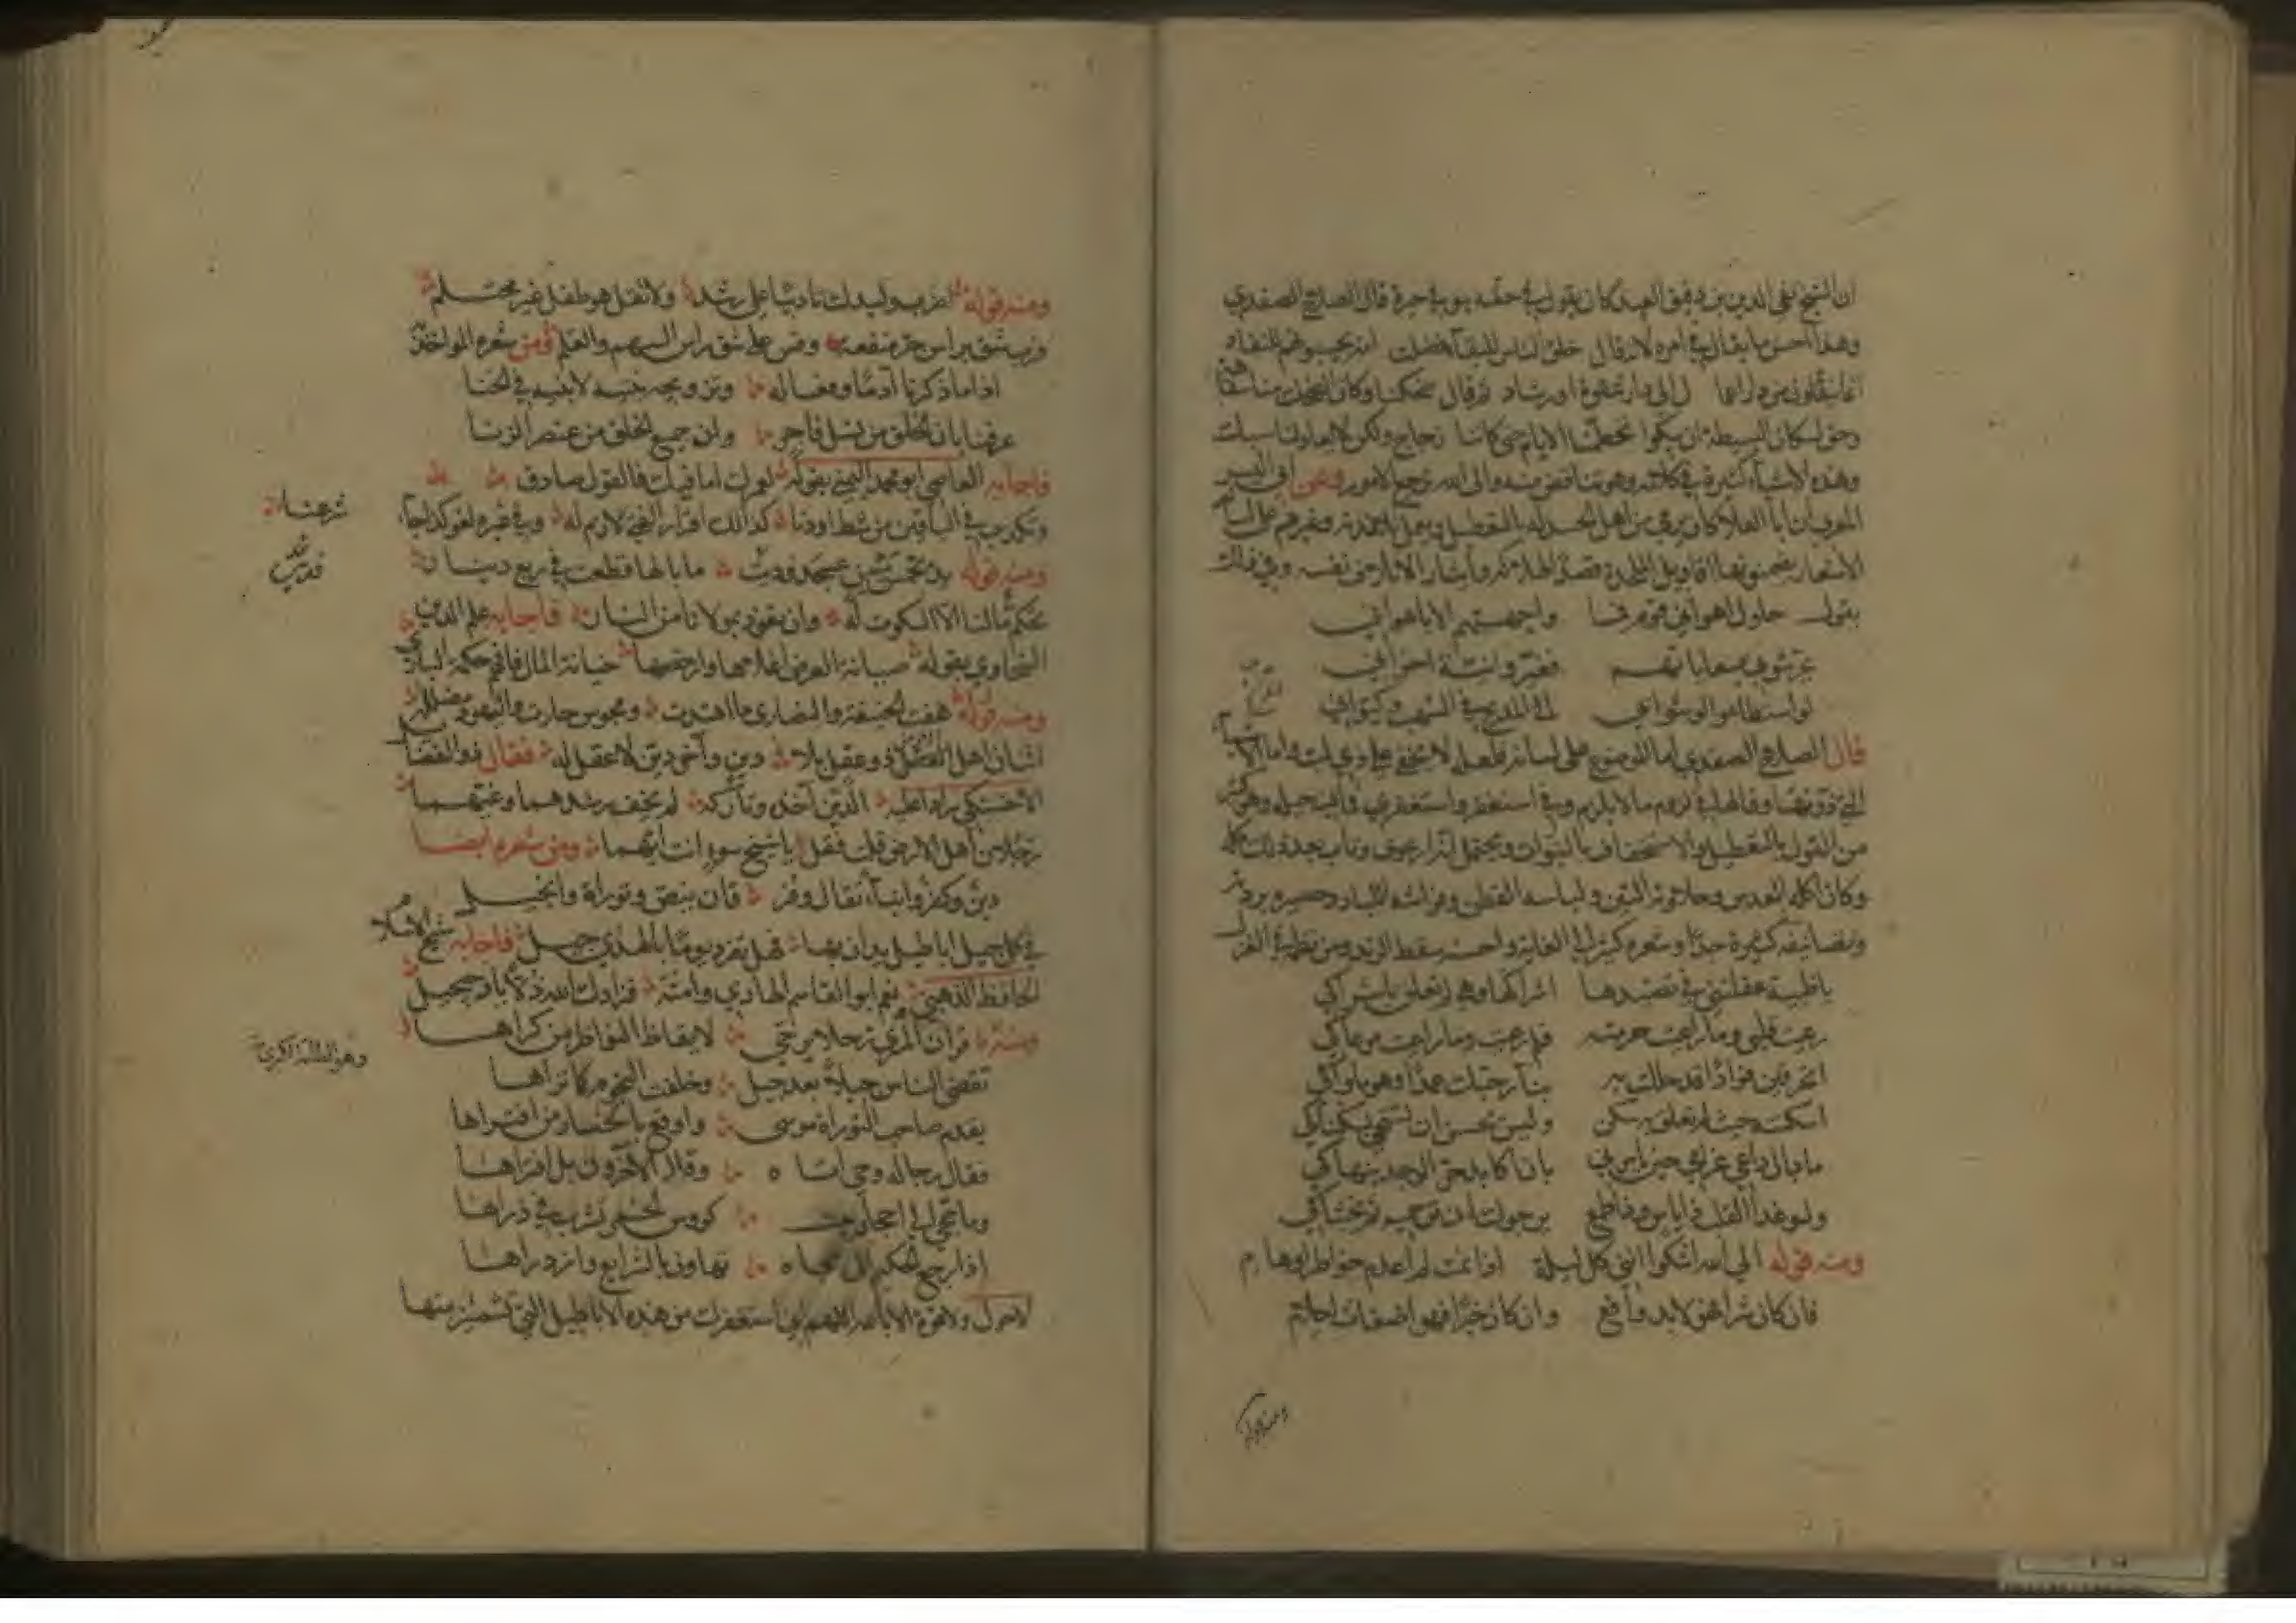 ان الشيخ تقي الدين بن دقيق العيد كان يقول في حقه هو في حيرة قال الصلاح الصفدي
وهذا احسن ما يقال في امره لانه قال خلق الناس للبقا فضلت امة يحسبونهم للنفاد
انما ينقلون من دار اعما ل الى دار شقوة او رشاد ثم قال ضحكنا وكان الضحك منا سفاهة
وحق لسكان البسيطة ان يبكوا تحطمنا الايام حتى كاننا زجاج ولكن لا يعاد لنا سبك
وهذه الاشياء كثيرة في كلامه وهو تناقض منه والى الله ترجع الامور وعن ابي اليسر
المعري ان ابا العلا كان يرمى من اهل الحسد له بالتعطيل ويعمل تلامذته وغيرهم على لسانه
الاشعار يضمنونها اقاويل الملحدة قصدا لهلاكه وايثار الاتلاف نفسه وفي ذلك
يقول حاول اهواني قوم فما واجهتهم الا باهواني
يحرشوني بسعاياتهم فغيروا نية اخواني
لو استطاعوا لوشوا بي الى المريخ في الشهب وكيوان
قال الصلاح الصفدي اما الموضوع على لسانه فلعله لا يخفى على ذي لب واما الاشياء
التي دونها وقالها في لزوم ما لا يلزم وفي استغفر واستغفري فما فيه حيلة وهو كثير
من القول بالتعطيل والاستخفاف بالنبوات ويحتمل انه ارعوى وتاب بعد ذلك كله
وكان اكله العدس وحلاوته التين ولباسه القطن وفراشه اللباد وحصيره بردية
وتصانيفه كثيرة جدا وشعره كثير الى الغاية واحسنه سقط الزند ومن نظمه في الغزل
يا ظبية علقتني في تصيدها اشراكها وهي لم تعلق باشراكي
رعيت قلبي وما راعيت حرمته فلم رعيت وما راعيت مرعاكي
اتحرقين فؤادا قد حللت به بنار حبك عمدا وهو ماواكي
اسكنته حيث لم يعلق به سكن وليس يحسن ان تسخي بسكناكي
ما بال داعي غرامي حين يامرني بان اكابد حر الوجد ينهاكي
ولو غدا القلب ذا ياس وذا طمع يرجوك ان ترحميه ثم يخشاكي
ومنه قوله الى الله اشكوا انني كل ليلة اذا نمت لم اعدم خواطر اوهام
فان كان شرا فهو لا بد واقع وان كان خيرا فهو اضغاث احلام
ومنه قوله
ومنه قوله اضرب وليدك تاديبا على رشد ولا تقل هو طفل غير محتلم
فرب شق براس جر منفعة وقس على شق راس السهم والقلم ومن شعره المؤاخذ
اذا ما ذكرنا آدما وفعاله وتزويجه بنتيه لابنيه في الخنا
عرفنا بان الخلق من نسل فاجر وان جميع الخلق من عنصر الزنا
فاجابه القاضي ابو محمد اليمني بقوله لعمرك اما فيك فالقول صادق
وتكذب في الباقين من شط او دنا كذلك اقرار الفتى لازم له وفي غيره لغو كذا جاء
شرعنا
ومنه قوله يد بخمس مئين عسجد فديت ما بالها قطعت في ربع دينار
تحكم ما لنا الا السكوت له وان نعوذ بمولانا من النار فاجابه علم الدين
السخاوي بقوله صيانة العرض اغلاها وارخصها خيانة المال فافهم حكمة الباري
ومنه قوله هفت الحنيفة والنصارى ما اهتدت ومجوس حارت واليهود مضللة
اثنان اهل الارض ذو عقل بلا دين وآخر دين لا عقل له فقال ذو الفضائل
الاخسيكتي رادا عليه الدين آخذه وتاركه لم يخف رشدهما وغيهما
رجلان اهل الارض قلت فقل يا شيخ سوء انت ايهما ومن شعره ايضا
دين وكفر وانباء تقال وفر قان ينص وتوراة وانجيل
في كل جيل اباطيل يدان بها فهل تفرد يوما بالهدى جيل فاجابه شيخ الاسلام
الحافظ الذهبي نعم ابو القاسم الهادي وامته فزادك الله ذلا يا دجيجيل
ومنه قران المشتري زحلا يرجى لايقاظ النواظر من كراها
تقضى الناس جيلا بعد جيل وخلفت النجوم كما تراها
تقدم صاحب التوراة موسى واوقع بالخسار من افتراها
فقال رجاله وحي اتاه وقال الآخرون بل افتراها
وما حجي الى احجار بيت كؤوس الخمر تشرب في ذراها
اذا رجع الحكيم الى حجاه تهاون بالشرائع وازدراها
لاحول ولا قوة الا بالله اللهم اني استغفرك من هذه الاباطيل التي تشمئز منها